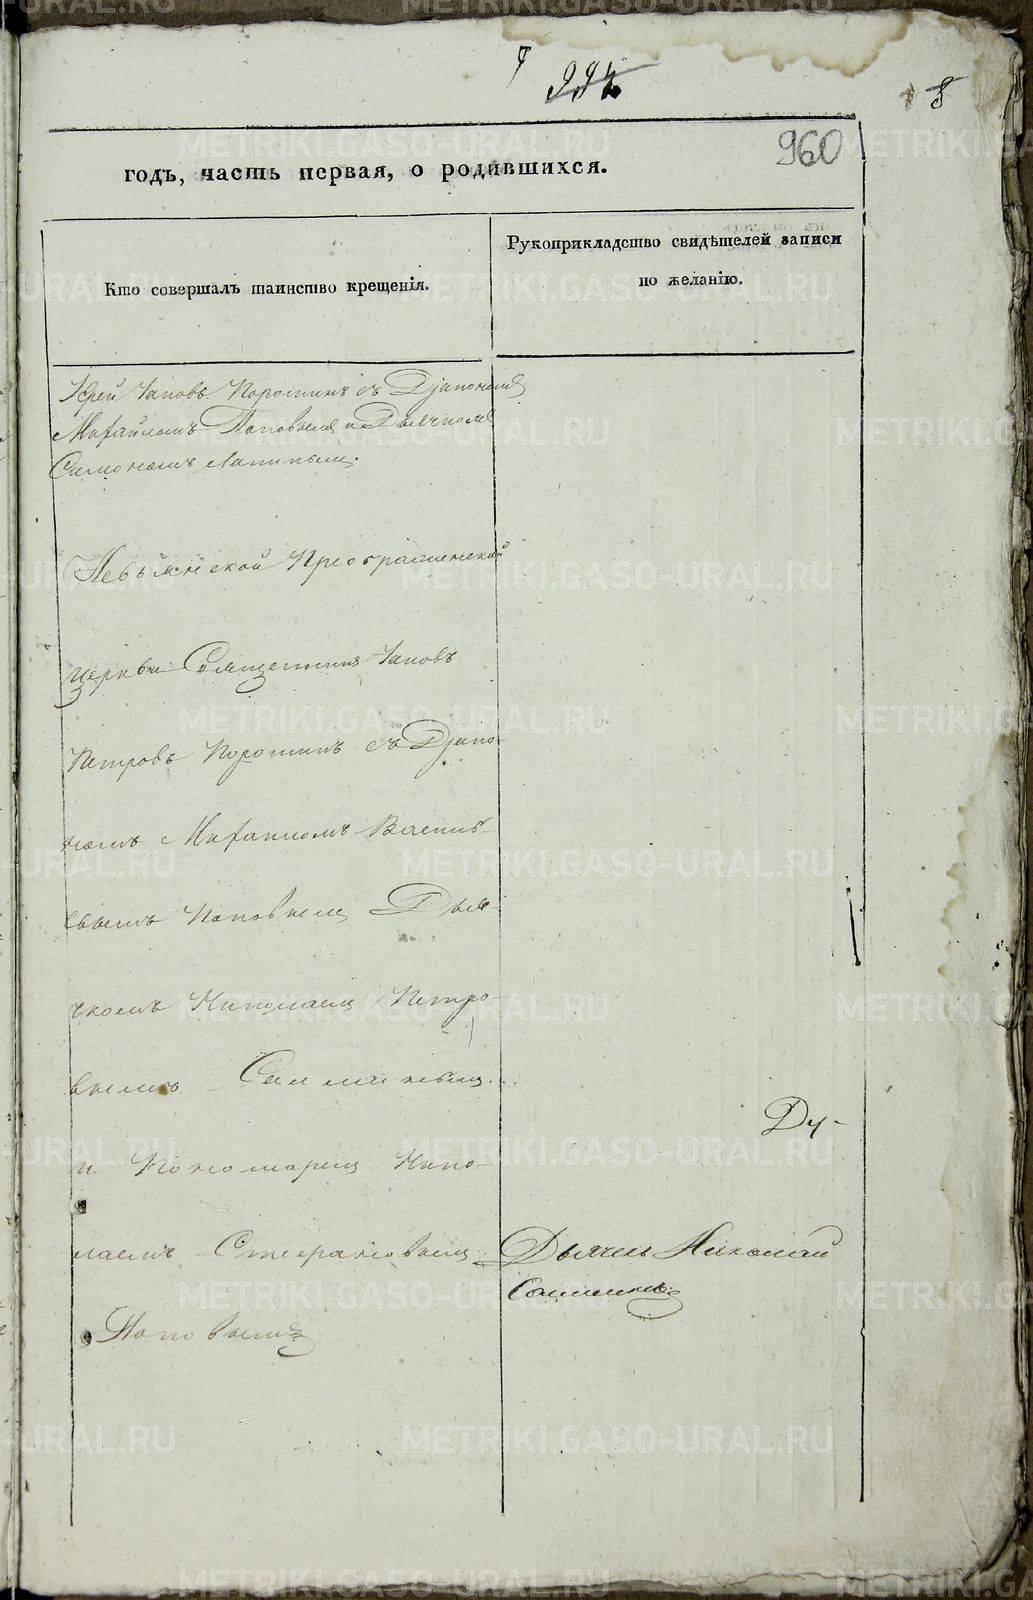 994
8
960
годъ, часть первая, о родившихся.
Кто совершалъ таинство крещенія.
Рукоприкладство свидѣтелей записи
по желанію.
Іерей Іаковъ Порошинъ съ Діакономъ
Михаиломъ Поповымъ и Дьячкомъ
Симономъ
Невьянской Преображенской
церкви Священникъ Іаковъ
Петровъ Порошинъ съ Діако-
номъ Михаиломъ Василь-
евымъ Поповымъ Дья-
чкомъ Николаемъ Петро-
вымъ
и Пономаремъ Нико-
лаемъ Стефановымъ
Поповымъ
Ду-
Дьячекъ Николай
METRIKI.GASO-URAL.RU